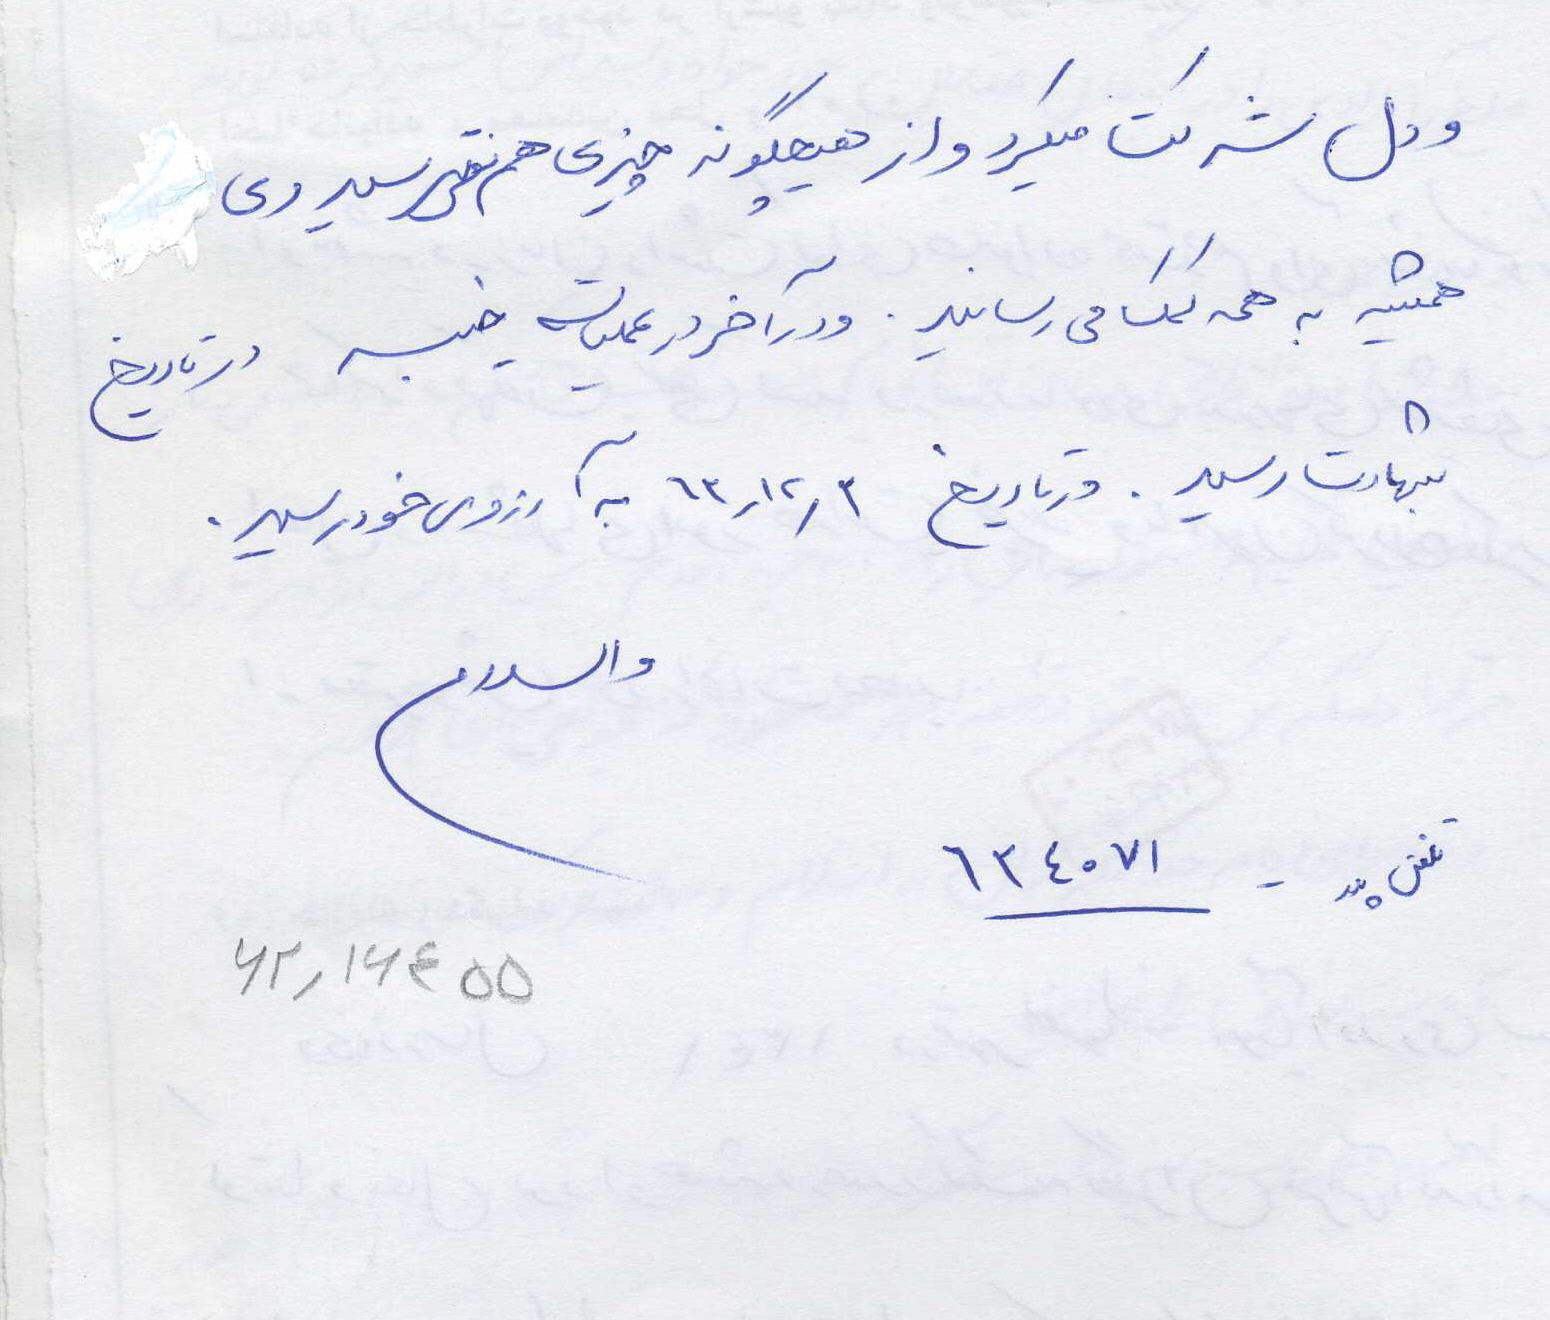 و دل شرکت میکرد و از هیچگونه چیزی هم نمی ترسید وی
همیشه به همه کمک می رسانید . و در آخر در عملیات خیبر در تاریخ
بشهادت رسید . در تاریخ ٦٢٫١٢٫٣ به آرزوی خود رسید .
والسلام
تلفن پدر - ٦٢٤٠٧١
۶۲٫۱۶۴۵۵